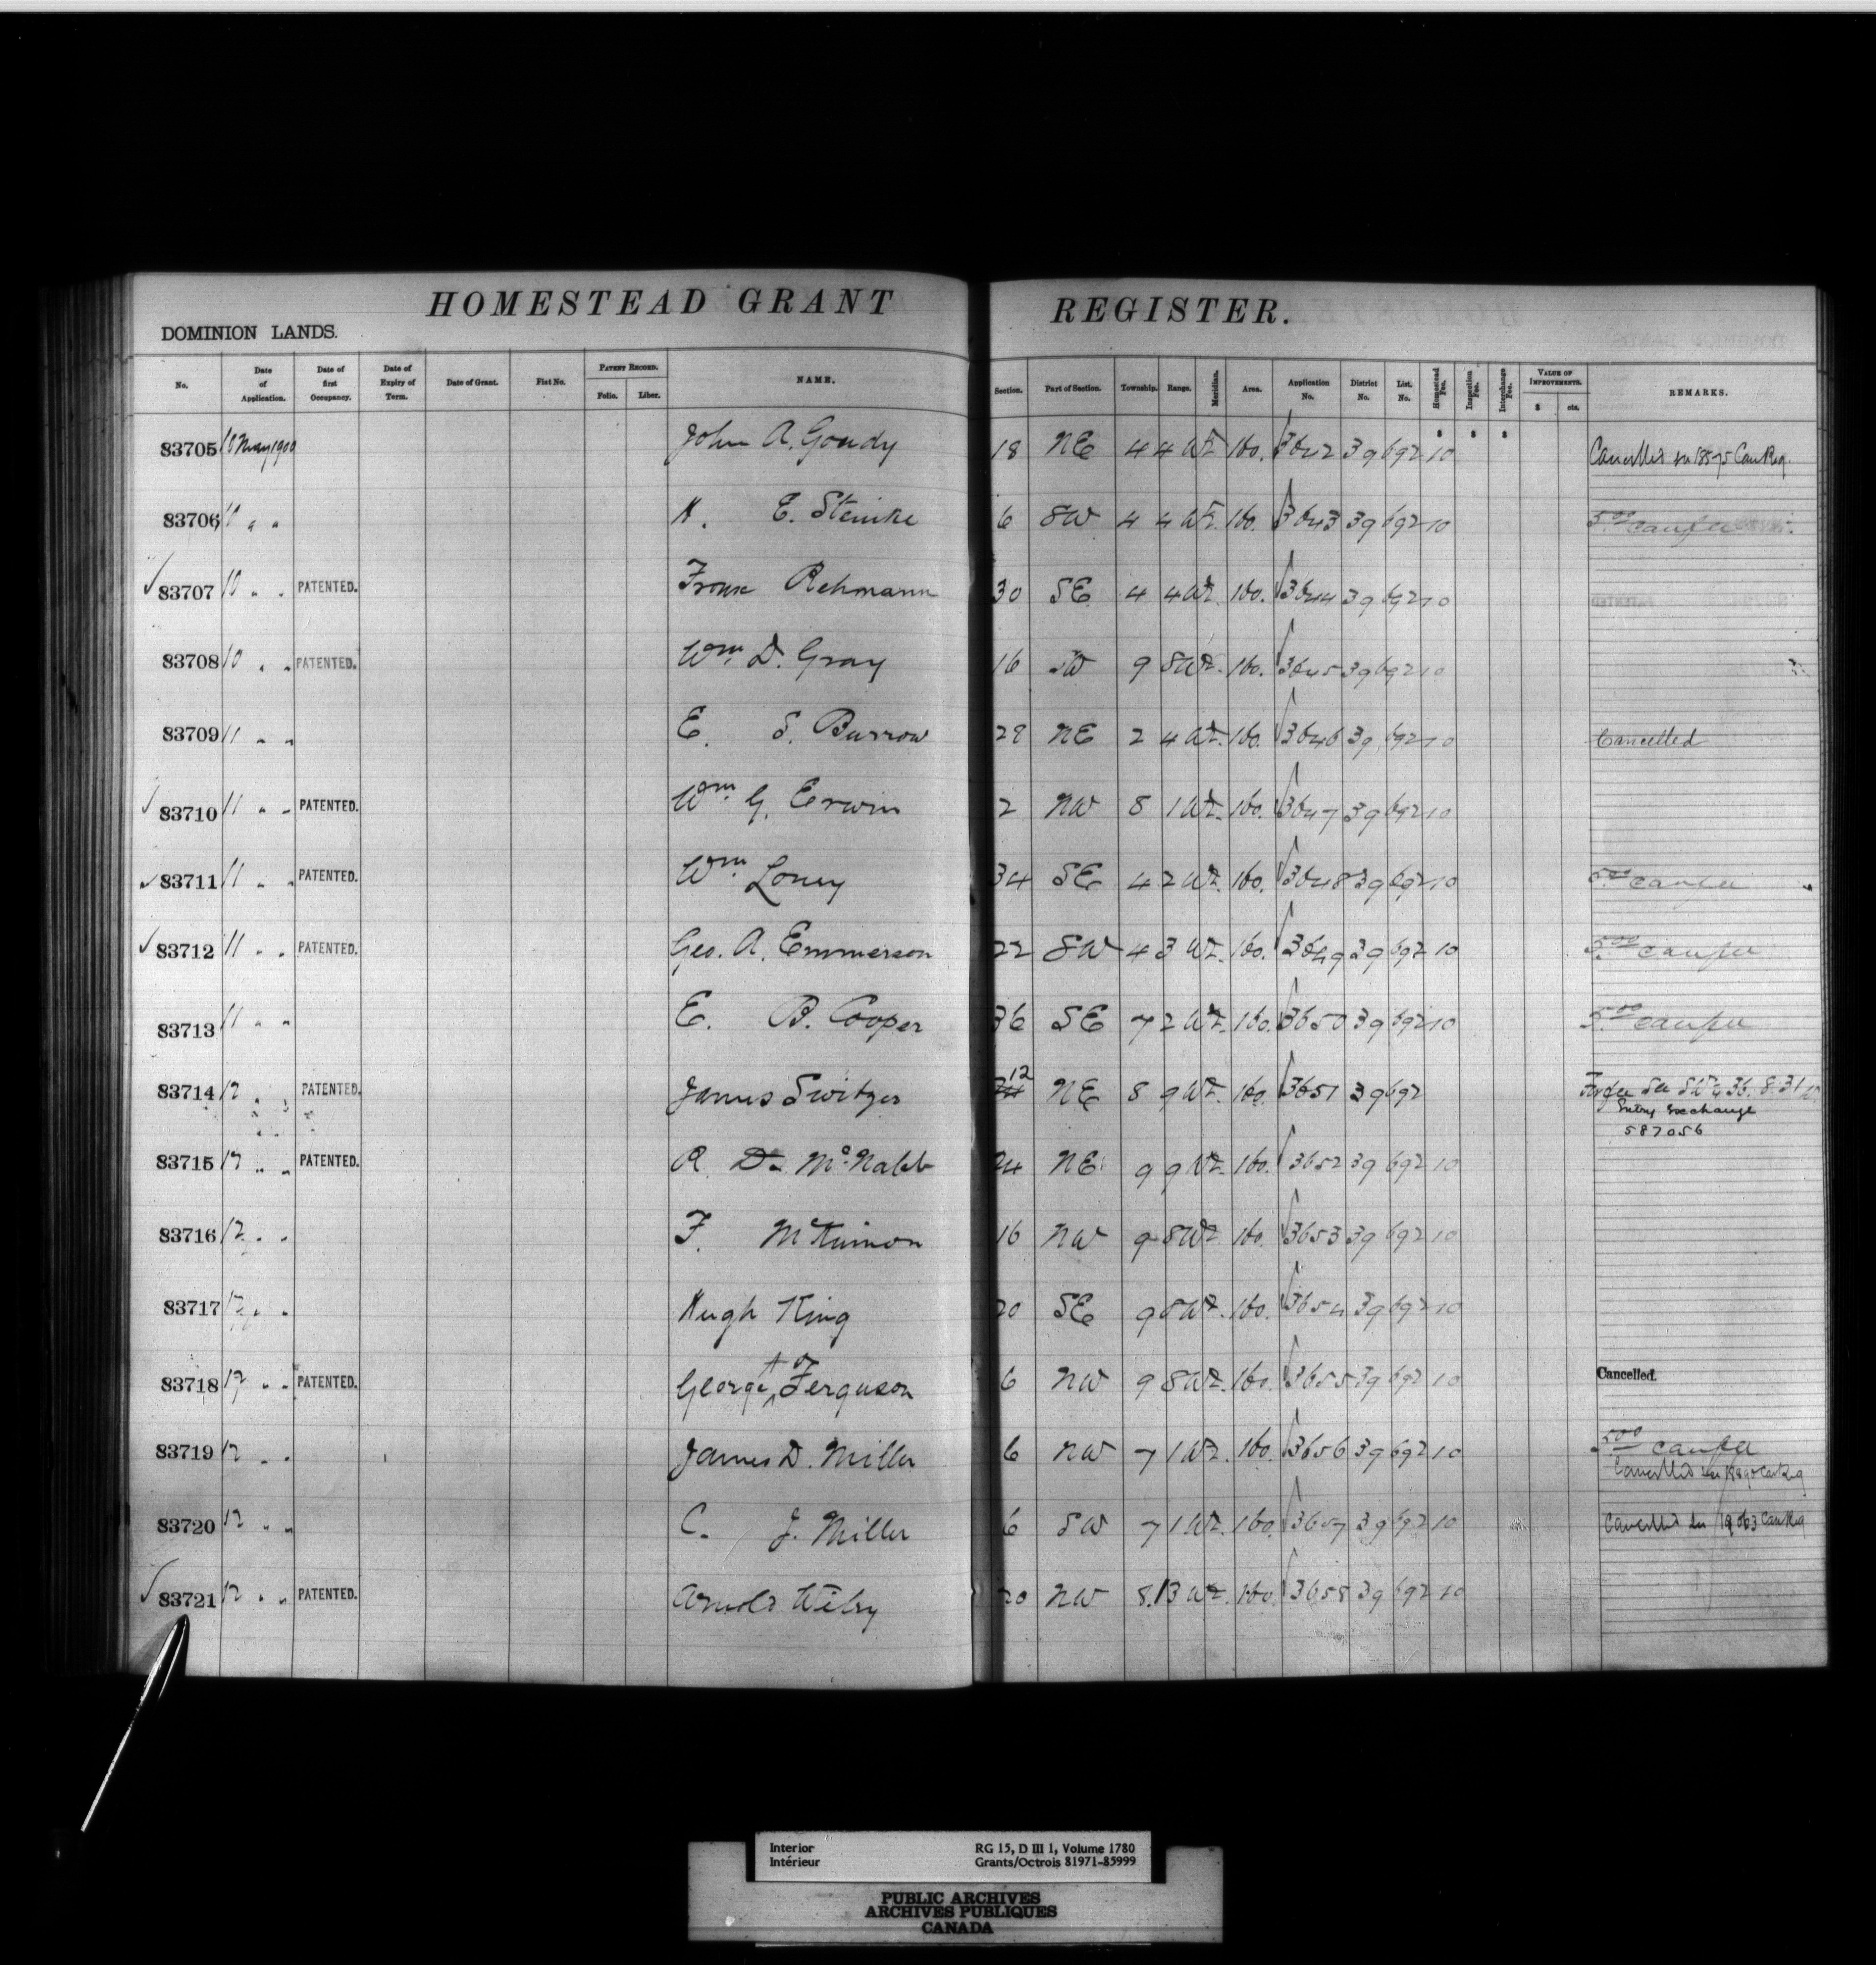 HOMESTEAD GRANT REGISTER.
DOMINION LANDS.
No. Date of Application. Date of first Occupancy. Date of Expiry of Term. Date of Grant. Fiat No. PATENT RECORD. Folio. Liber. NAME. Section. Part of Section. Township. Range. Meridian. Area. Application No. District No. List. No. Homestead Fee. Inspection Fee. Interchange Fee. VALUE OF IMPROVEMENTS. $ cts. REMARKS.
83705 10 May 1900 John A. Goudy 18 NE 4 4 W2 160. 3642 39 692 10 Cancelled see 18575 Can Reg.
83706 10 " " H. E. Steinke 6 SW 4 4 W2. 160. 3643 39 692 10 5.00
83707 10 " " PATENTED. Frank Rehmann 30 SE 4 4 W2. 160. 3644 39 692 10
83708 10 " " PATENTED. Wm. D. Gray 16 SW 9 8 W2. 160. 3645 39 692 10
83709 11 " " E. S. Burrow 28 NE 2 4 W2. 160. 3646 39 692 10 Cancelled
83710 11 " " PATENTED. Wm. G. Erwin 2 NW 8 1 W2. 160. 3647 39 692 10
83711 11 " " PATENTED. Wm. Loney 34 SE 4 2 W2. 160. 3648 39 692 10 5.00
83712 11 " " PATENTED. Geo. A. Emmerson 22 SW 4 3 W2. 160. 3649 39 692 10 5.00
83713 11 " " E. B. Cooper 36 SE 7 2 W2. 160. 3650 39 692 10 5.00
83714 12 " " PATENTED. James Switzer 12 NE 8 9 W2. 160. 3651 39 692
Entry Exchange
587056
83715 12 " " PATENTED. R. D. McNabb 24 NE 9 9 W2. 160. 3652 39 692 10
83716 12 " " F. McKinnon 16 NW 9 8 W2. 160. 3653 39 692 10
83717 12 " " Hugh King 20 SE 9 8 W2. 160. 3654 39 692 10
83718 12 " " PATENTED. George Ferguson 6 NW 9 8 W2. 160. 3655 39 692 10 Cancelled.
83719 12 " " James D. Miller 6 NW 7 1 W2. 160. 3656 39 692 10 5.00
83720 12 " " C. J. Miller 6 SW 7 1 W2. 160. 3657 39 692 10 Cancelled see 19063 Can Reg
83721 12 " " PATENTED. Arnold Wilby 20 NW 8 13 W2. 160. 3658 39 692 10
Interior RG 15, D III 1, Volume 1780
Intérieur Grants/Octrois 81971-85999
PUBLIC ARCHIVES
ARCHIVES PUBLIQUES
CANADA